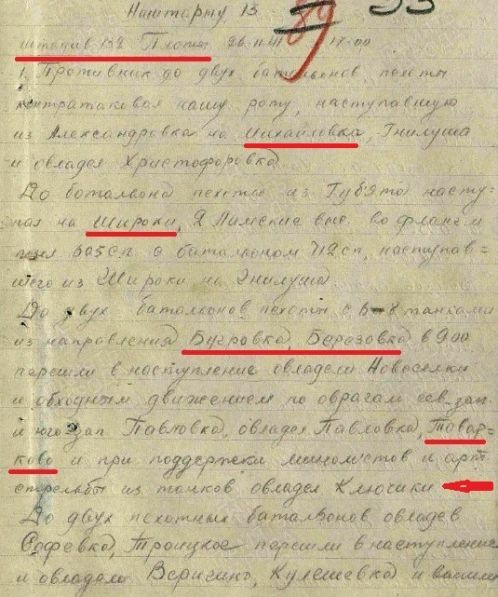 Наштарму 13
89
штадив 132 Плоты 26.11.41 17-00
1. Противник до двух батальонов пехоты
контратаковал нашу роту, наступавшую
из Александровка на Михайловка, Гнилуша
и овладел Христофоровка.
До батальона пехоты из Губято насту-
пал на Широки, 2 Ламские выс. во фланг и
605 СП с батальоном 712 сп, наступав-
шего из Широки на Гнилуша.
До двух батальонов пехоты с 6-8 танками
из направления Бугровка, Березовка в 9 00
перешли в наступление овладели Новоселки
и обходным движением по оврагам сев. зап.
и юго зап Павловка, овладел Павловка, Товар-
ково и при поддержки минометов и арт
стрельбы из танков овладел Ключики
До двух пехотных батальонов овладев
Софевка, Троицкое перешли в наступление
и овладели Веригино, Кулешевка и